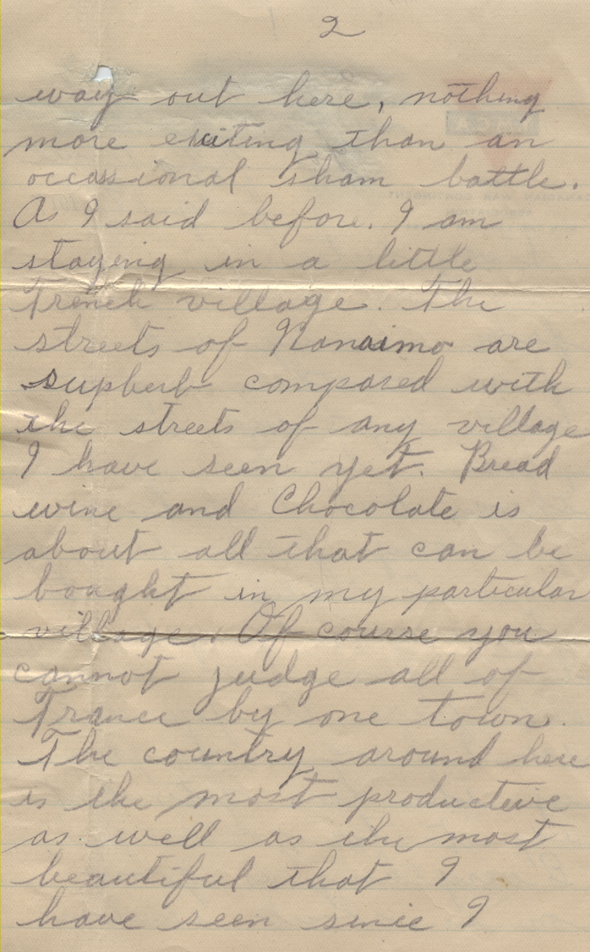 2
way out here, nothing
more exiting than an
occassional sham battle.
As I said before. I am
staying in a little
French village. The
streets of Nanaimo are
supberb compared with
the streets of any village
I have seen yet. Bread
wine and Chocolate is
about all that can be
bought in my particular
village. Of course you
cannot judge all of
France by one town.
The country around here
is the most productive
as well as the most
beautiful that I
have seen since I